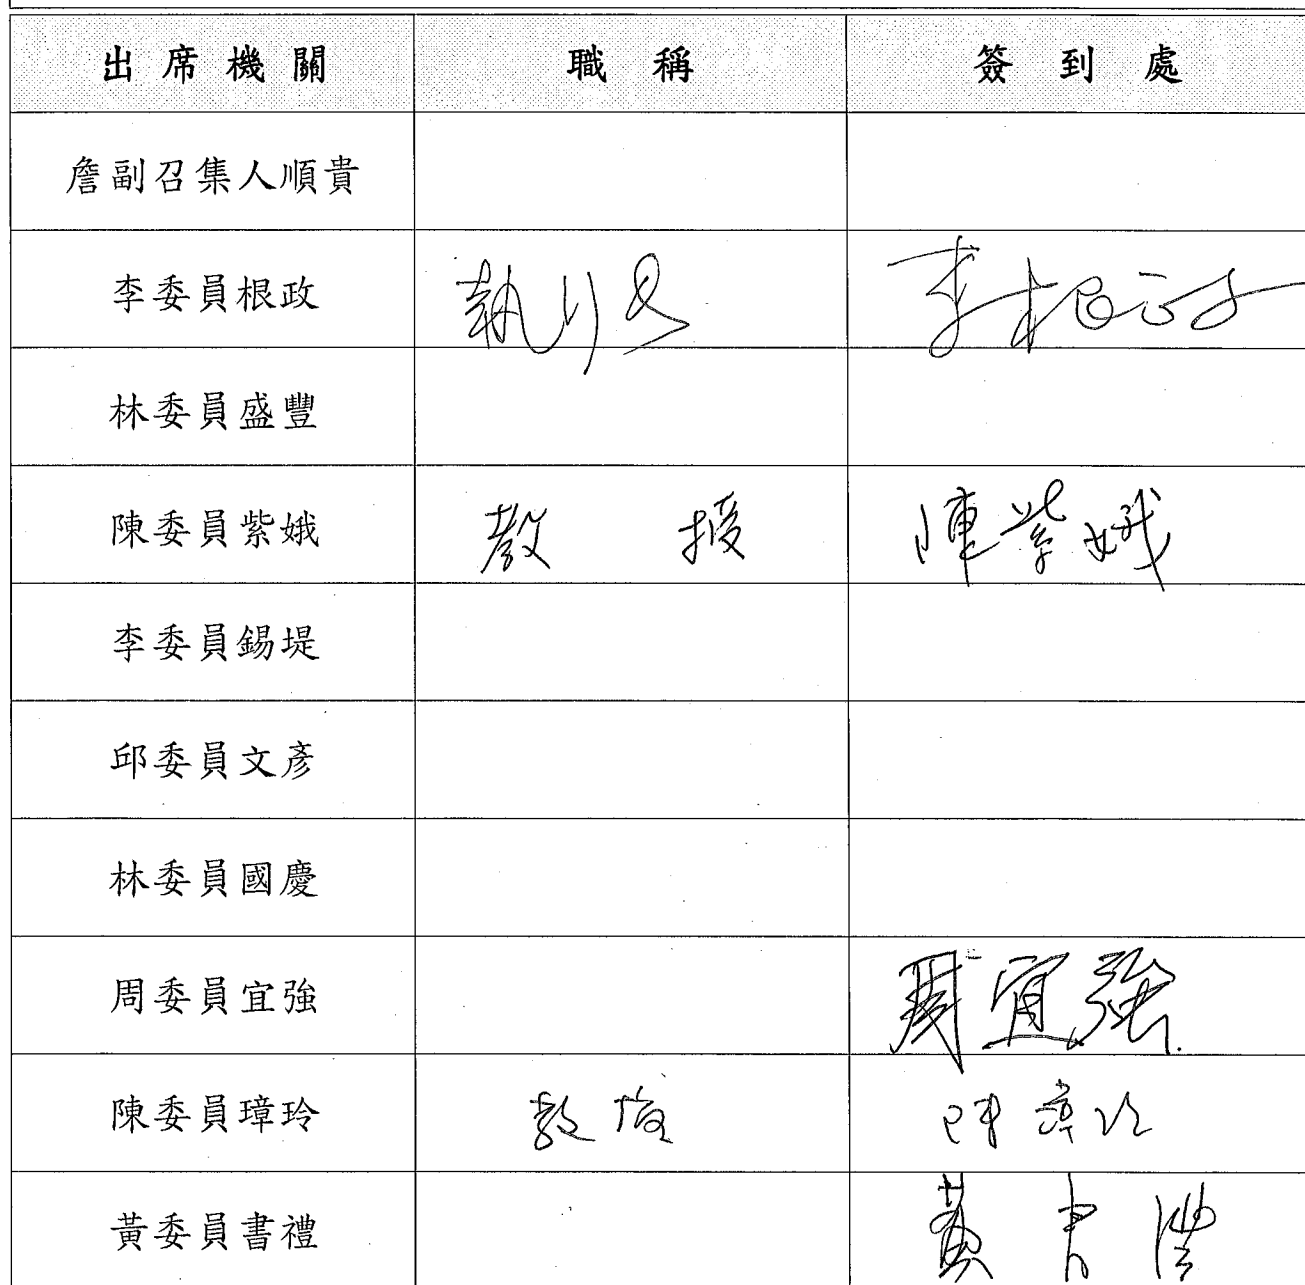 出席機關 職稱 簽到處
詹副召集人順貴
李委員根政 執行長 李根政
林委員盛豐
陳委員紫娥 教授 陳紫娥
李委員錫堤
邱委員文彥
林委員國慶
周委員宜強 周宜強
陳委員璋玲 教授 陳璋玲
黃委員書禮 黃書禮